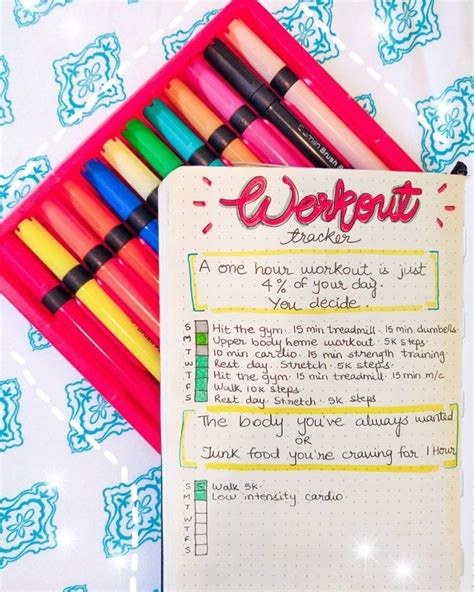 Workout
tracker
A one hour workout is just
4% of your day.
You decide.
S Hit the gym. 15 min treadmill. 15 min dumbells.
M Upper body home workout. 5k steps
T 10 min cardio. 15 min strength training
W Rest day. Stretch. 5k steps.
T Hit the gym. 15 min treadmill. 15 min m/c
F Walk 10k steps
S Rest day. Stretch. 5k steps
The body you've always wanted
OR
Junk food you're craving for 1 Hour
S S Walk 5k.
M Low intensity cardio.
T
W
T
F
S
Brush